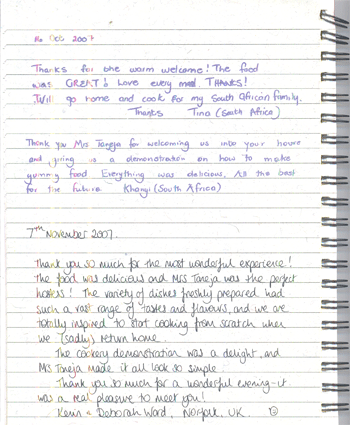 Oct 2007
Thanks for the warm welcome! The food
was GREAT! Love every meal. THANKS!
Will go home and cook for my South African family.
Thanks Tina (South Africa)
Thank you Mrs Taneja for welcoming us into your house
and giving us a demonstration on how to make
yummy food Everything was delicious. All the best
for the future Khanyi (South Africa)
7th November 2007.
Thank you so much for the most wonderful experience!
The food was delicious and Mrs Taneja was the perfect
hostess! The variety of dishes freshly prepared had
such a vast range of tastes and flavours, and we are
totally inspired to start cooking from scratch when
we (sadly) return home.
The cookery demonstration was a delight, and
Mrs Taneja made it all look so simple.
Thank you so much for a wonderful evening - it
was a real pleasure to meet you!
Kevin & Deborah Ward, Norfolk, UK.